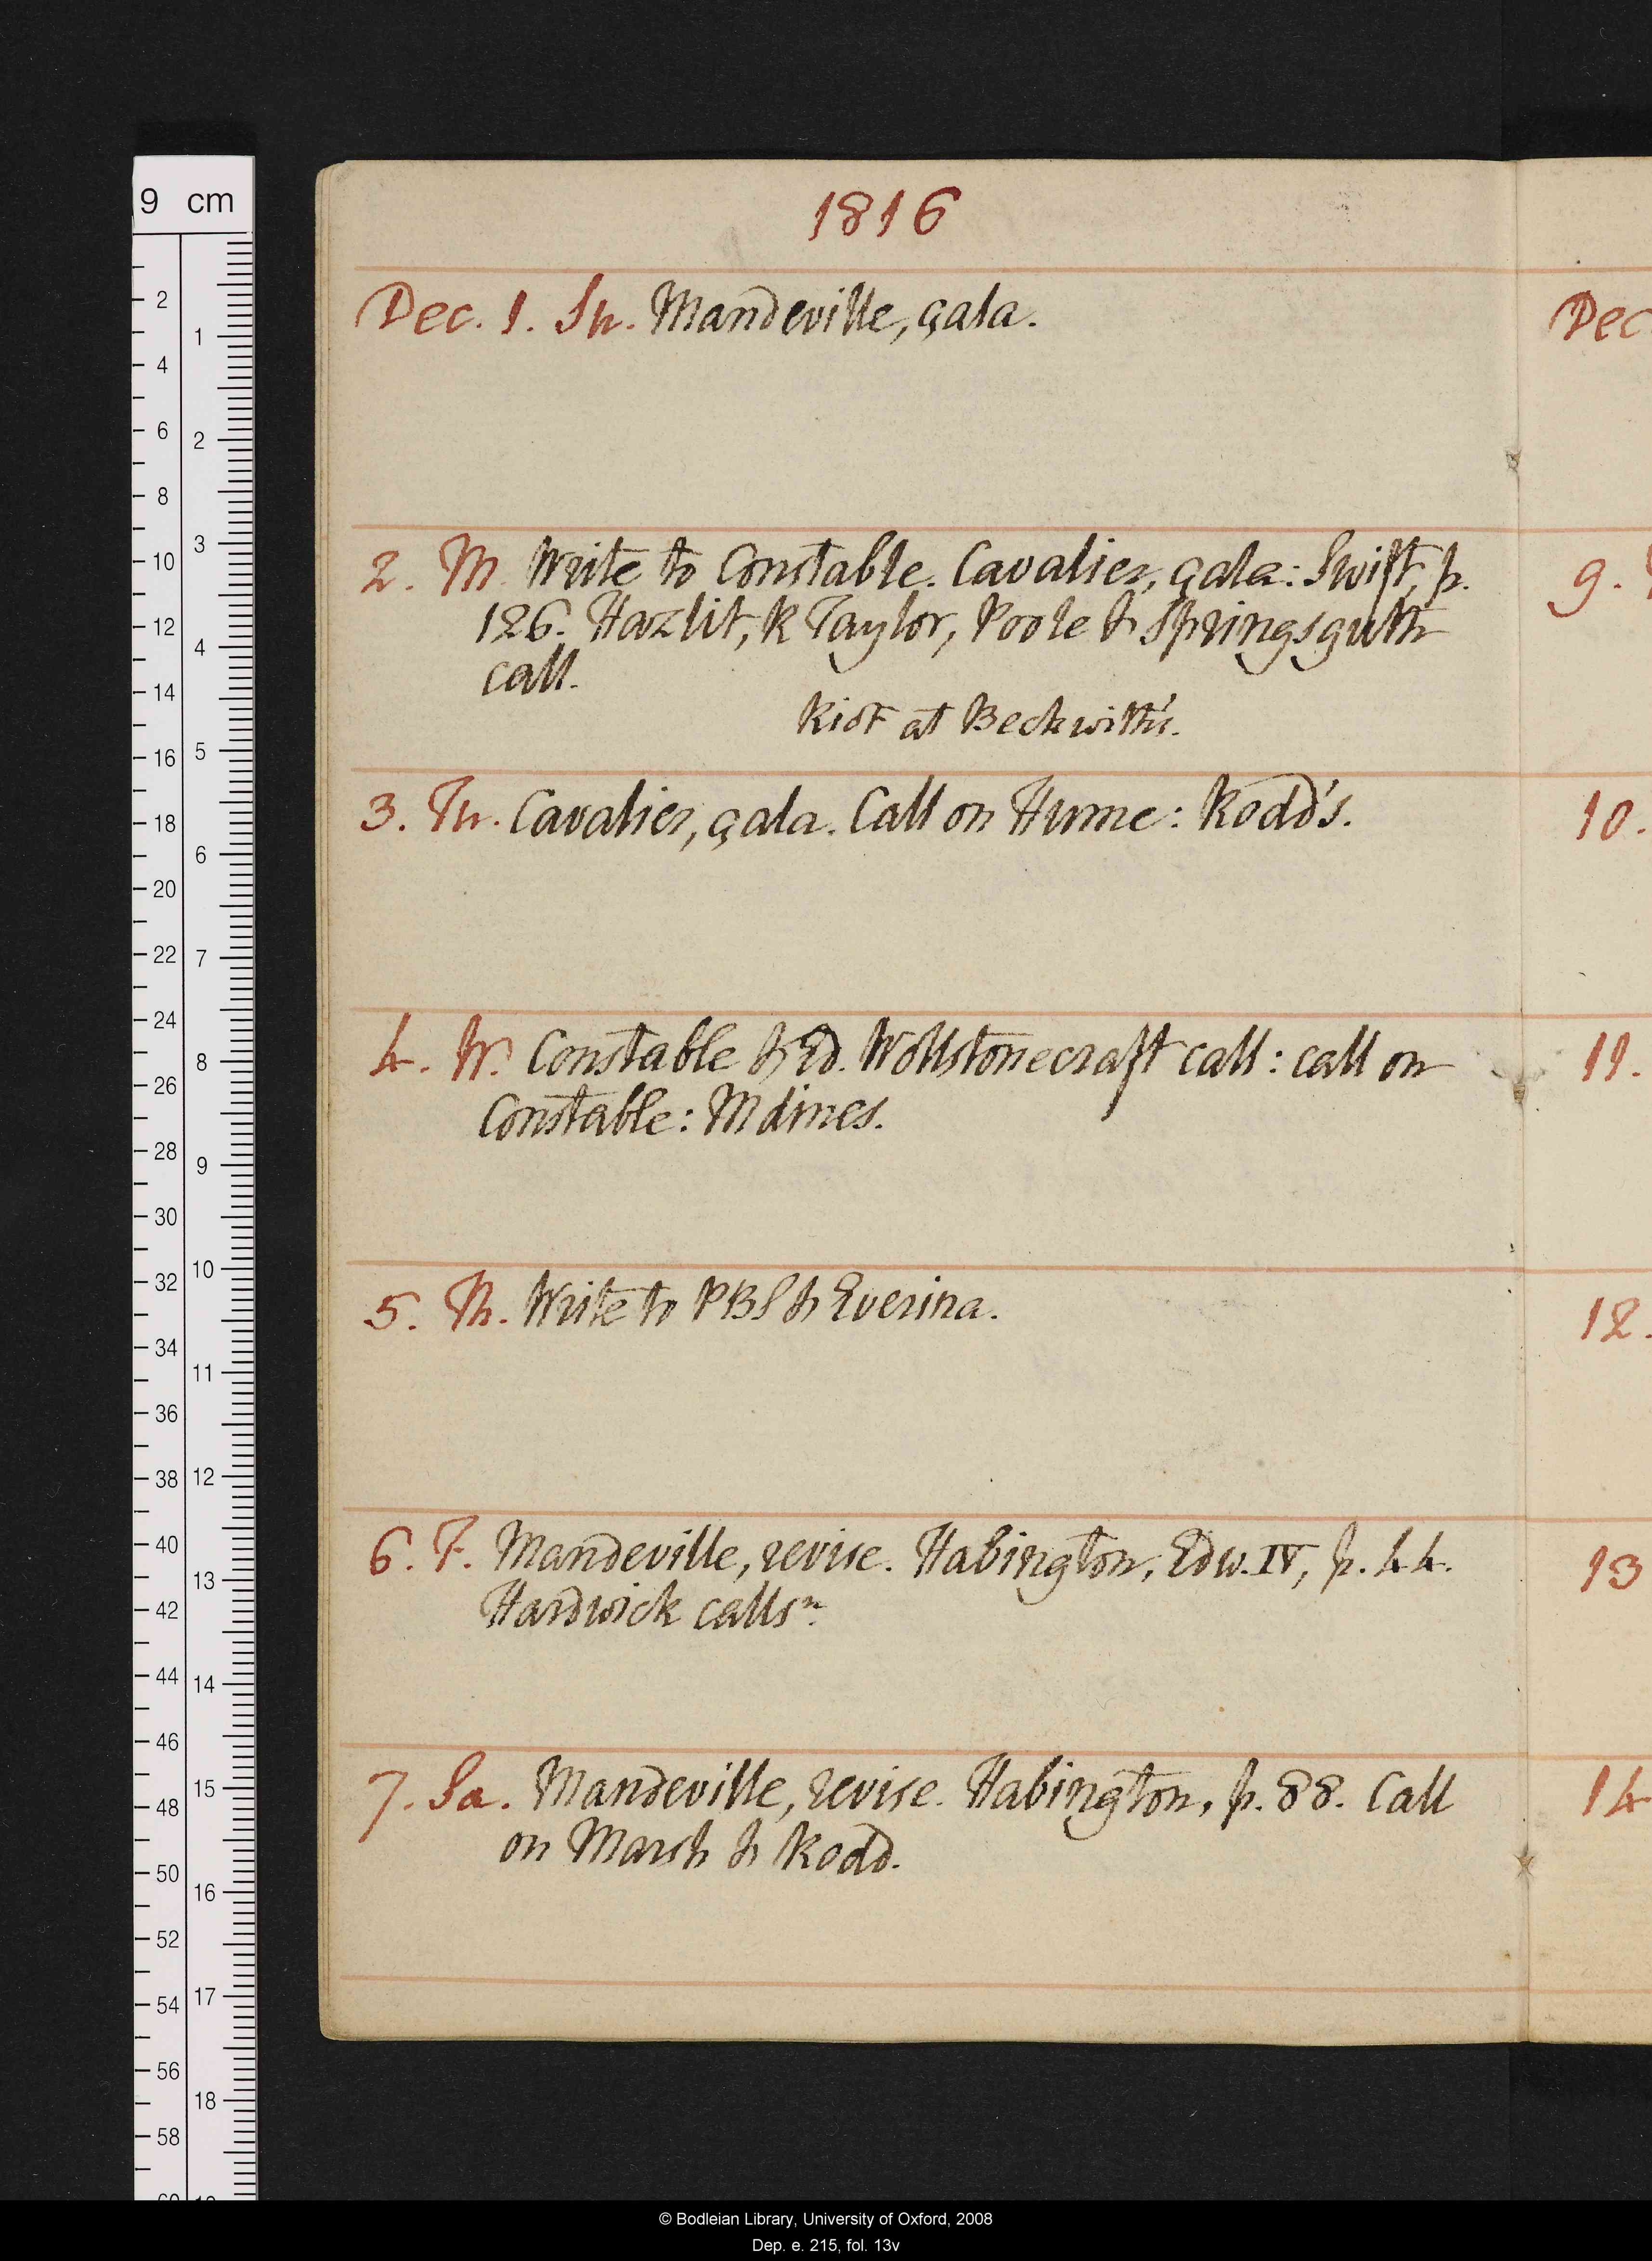 9 cm
1816
Dec. 1. Su. Mandeville, çala.
2. M. Write to Constable. Cavalier, çala: Swift, p.
126. Hazlit, R Taylor, Poole & Springsguth
call.
Riot at Beckwith's.
3. Tu. Cavalier, çala. Call on Hume: Rodd's.
4. W. Constable & Ed. Wollstonecraft call: call on
Constable: M dines.
5. Th. Write to PBS & Everina.
6. F. Mandeville, revise. Habington, Edw. IV, p. 44.
Hardwick calls n.
7. Sa. Mandeville, revise. Habington, p. 88. Call
on Marsh & Rodd.
Dec
9.
10.
11.
12.
13
14
2
4
6
8
10
12
14
16
18
20
22
24
26
28
30
32
34
36
38
40
42
44
46
48
50
52
54
56
58
1
2
3
4
5
6
7
8
9
10
11
12
13
14
15
16
17
18
© Bodleian Library, University of Oxford, 2008
Dep. e. 215, fol. 13v